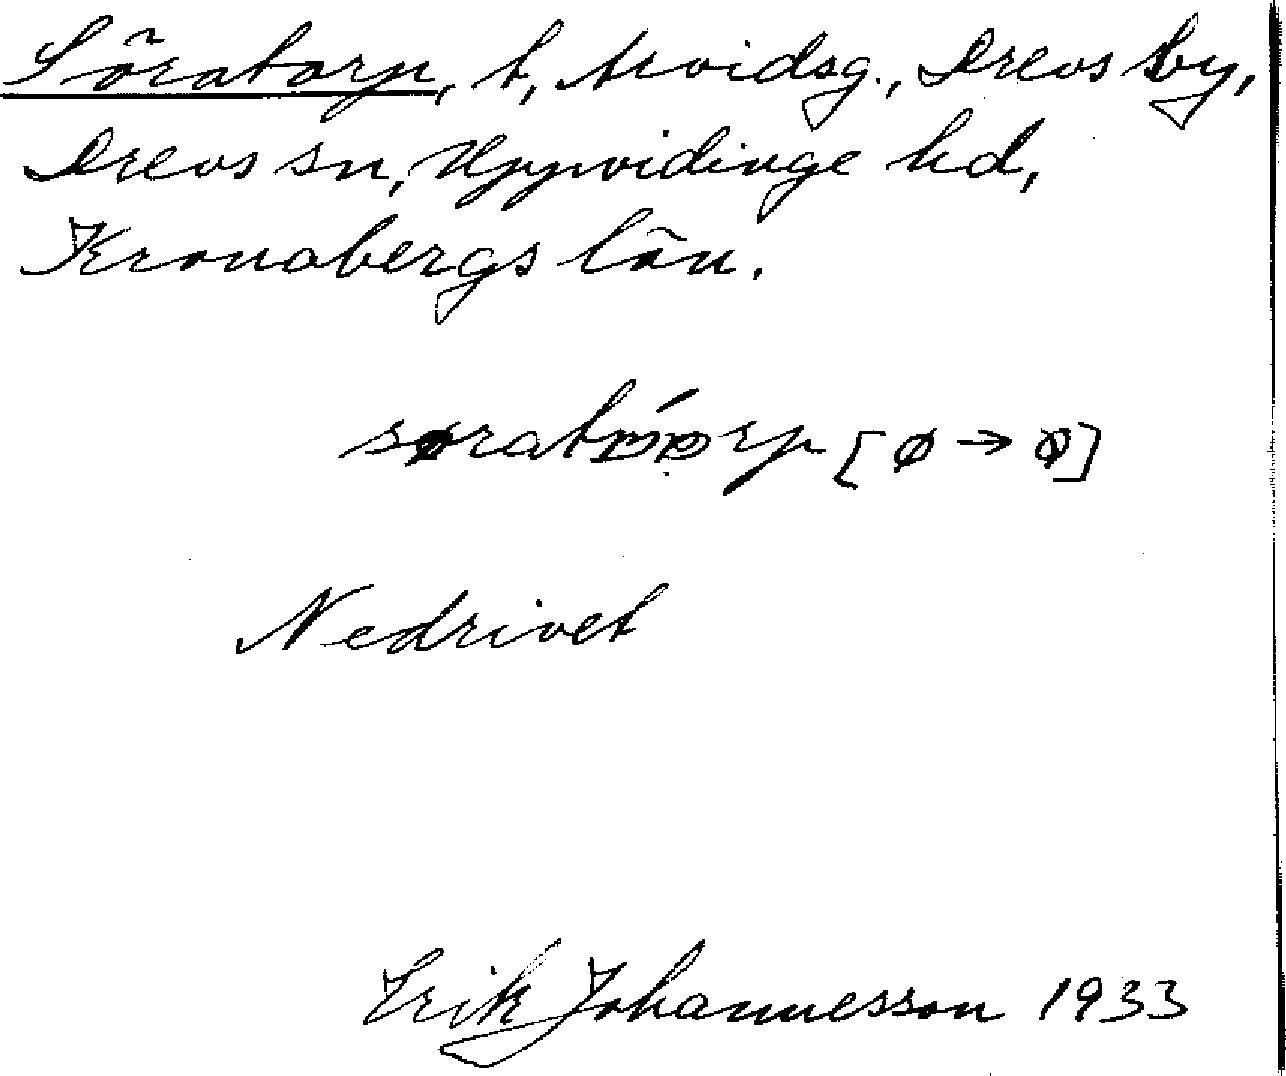 Söratorp, t, Arvidsg., Drevs by,
Drevs sn, Uppvidinge hd,
Kronobergs län.
[ø → ø]
Nedrivet
Erik Johannesson 1933